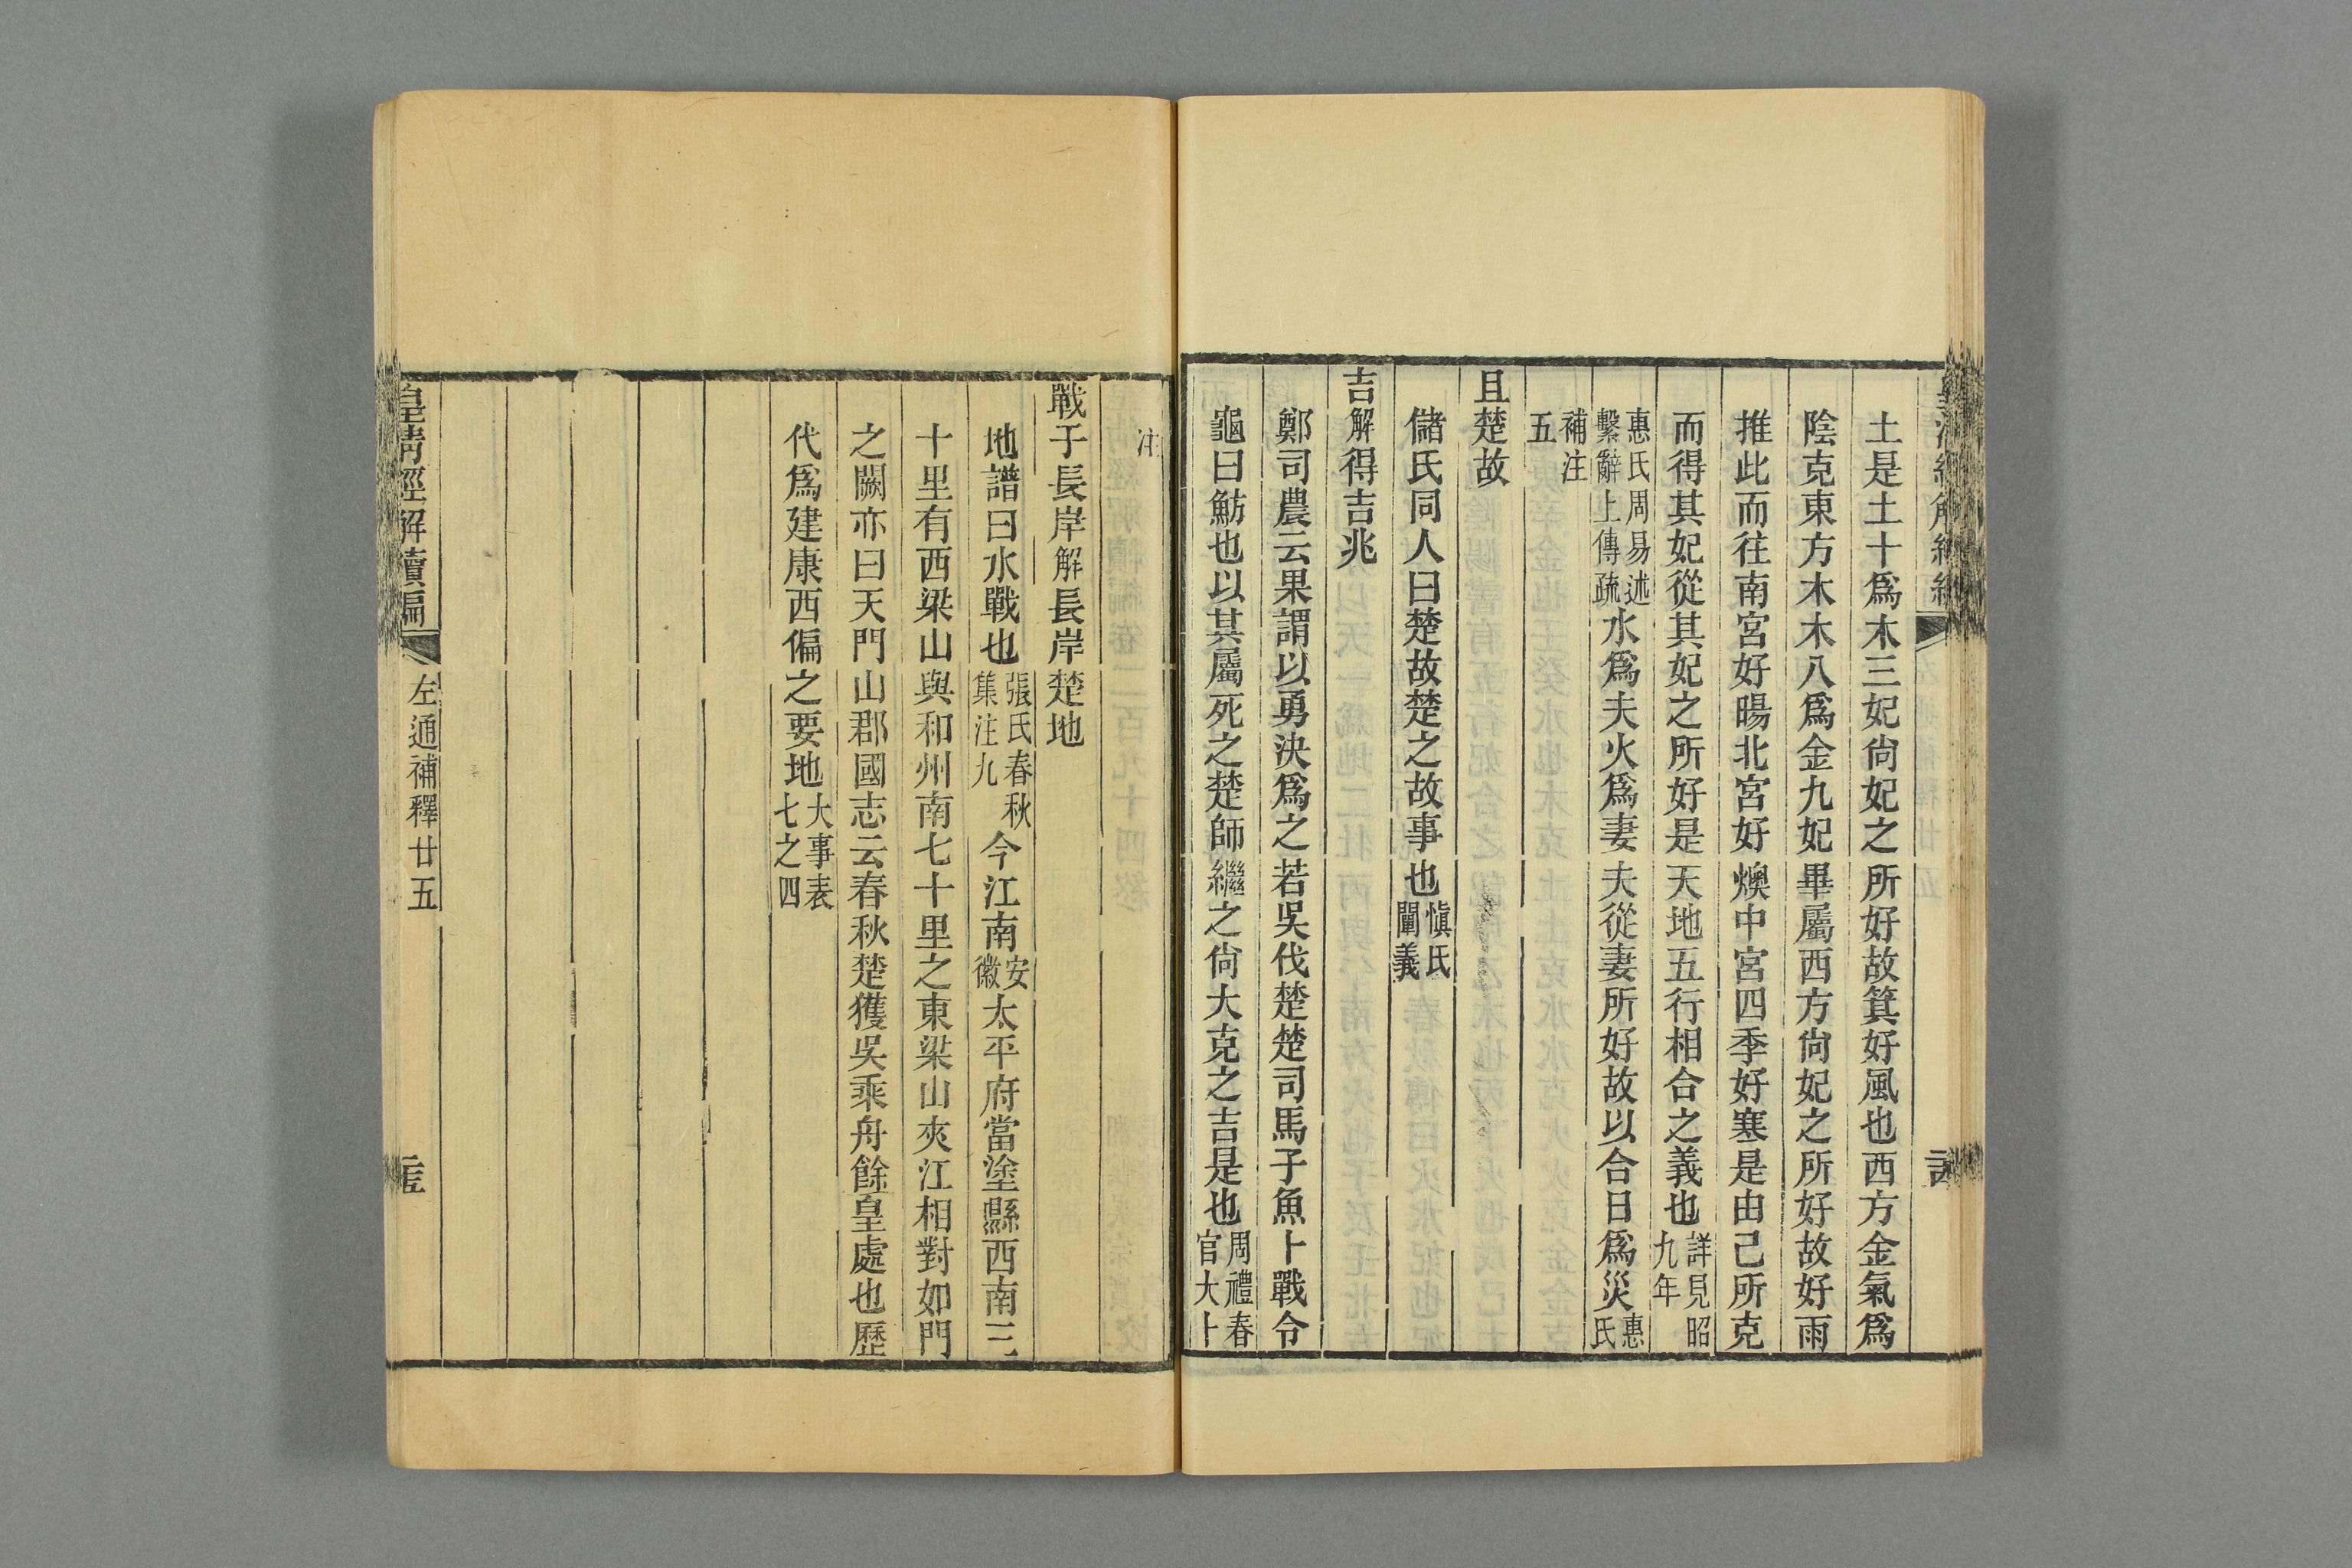 土是土十爲木三妃尙妃之所好故箕好風也西方金氣爲
陰克東方木木八爲金九妃畢屬西方尙妃之所好故好雨
推此而往南宮好暘北宮好燠中宮四季好寒是由己所克
而得其妃從其妃之所好是天地五行相合之義也詳見昭九年
惠氏周易述繫辭上傳疏水爲夫火爲妻夫從妻所好故以合日爲災惠氏
補注五
且楚故
儲氏同人曰楚故楚之故事也愼氏闡義
吉解得吉兆
鄭司農云果謂以勇決爲之若吳伐楚楚司馬子魚卜戰令
龜曰魴也以其屬死之楚師繼之尙大克之吉是也周禮春官大卜
注
戰于長岸解長岸楚地
地譜曰水戰也張氏春秋集注九今江南安徽太平府當塗縣西南三
十里有西梁山與和州南七十里之東梁山夾江相對如門
之闕亦曰天門山郡國志云春秋楚獲吳乘舟餘皇處也歷
代爲建康西偏之要地大事表七之四
皇淸經解續編
左通補釋廿五